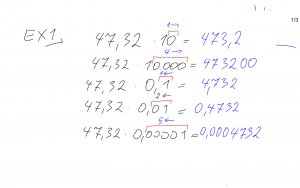 1/3
1→
EX1, 47,32 · 10 = 473,2
4→
47,32 · 10,000 = 473200
1←
47,32 · 0,1 = 4,732
2←
47,32 · 0,01 = 0,4732
5←
47,32 · 0,00001 = 0,0004732